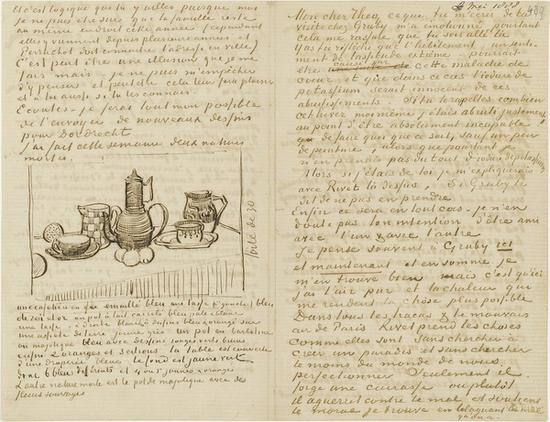 Mai 1888
489
Mon cher Theo, ce que tu m'écris de ta
visite chez Gruby m'a émotionné pourtant
cela me rassure que tu sois allé là.
As tu réfléchi que l'hébétement un senti-
ment de lassitude extrême pourrait
être causé par cette maladie de
coeur et que dans ce cas l'iodure de
potassium serait innocent de ces
abrutissements. Si tu te rappelles combien
cet hiver moi même j'étais abruti justement
au point d'être absolument incapable
de faire quoi que ce soit, sauf un peu
de peinture, alors que pourtant je
n'en prenais pas du tout d'iodure de potassium
Alors si j'étais de toi je m'expliquerais
avec Rivet là dessus, si Gruby te
dit de ne pas en prendre.
Enfin ce sera en tout cas je n'en
doute pas ton intention d'être ami
avec l'un & avec l'autre
Je pense souvent à Gruby ici
et maintenant et en somme je
m'en trouve bien mais c'est qu'ici
j'ai l'air pur et la chaleur qui
me rendent la chose plus possible
Dans tous les tracas & le mauvais
air de Paris Rivet prend les choses
comme elles sont sans chercher à
créer un paradis et sans chercher
le moins du monde de nous
perfectionner Seulement il
forge une cuirasse ou plutôt
il aguerrit contre le mal et soutient
le moral je trouve en blaguant le mal
et c'est logique que tu y ailles puisque moi
je ne puis être sûr que la famille reste
au même endroit cette année cependant
elles viennent depuis plusieurs années et
C'est peut être une illusion que je me
fais mais je ne puis m'empêcher
d'y penser et peut être cela leur fera plaisir
et à toi aussi si tu les connais.
Ecoutes je ferai tout mon possible
de t'envoyer de nouveaux dessins
pour Dordrecht
J'ai fait cette semaine deux natures
mortes.
toile de 30
une cafetière en fer emaillé bleu une tasse (à gauche) bleu
de roi et or un pot à lait carrelé bleu pâle et blanc
une tasse – à droite blanche à dessins bleus & orangés sur
une assiette de terre jaune gris un pot en barbotine
ou majolique bleu avec dessins rouges verts bruns
enfin 2 oranges et 3 citrons la table est couverte
d'une draperie bleue le fond est jaune vert
donc 6 bleus différents et 4 ou 5 jaunes & orangés
L'autre nature morte est le pot de majolique avec des
fleurs sauvages